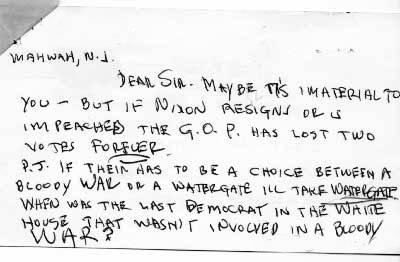 MAHWAH, N.J.
DEAR SIR. MAYBE ITS IMATERIAL TO
YOU - BUT IF NIXON RESIGNS OR IS
IMPEACHED THE G.O.P. HAS LOST TWO
VOTES FOREVER.
P.S. IF THEIR HAS TO BE A CHOICE BETWEEN A
BLOODY WAR OR A WATERGATE ILL TAKE WATERGATE.
WHEN WAS THE LAST DEMOCRAT IN THE WHITE
HOUSE THAT WASN'T INVOLVED IN A BLOODY
WAR?